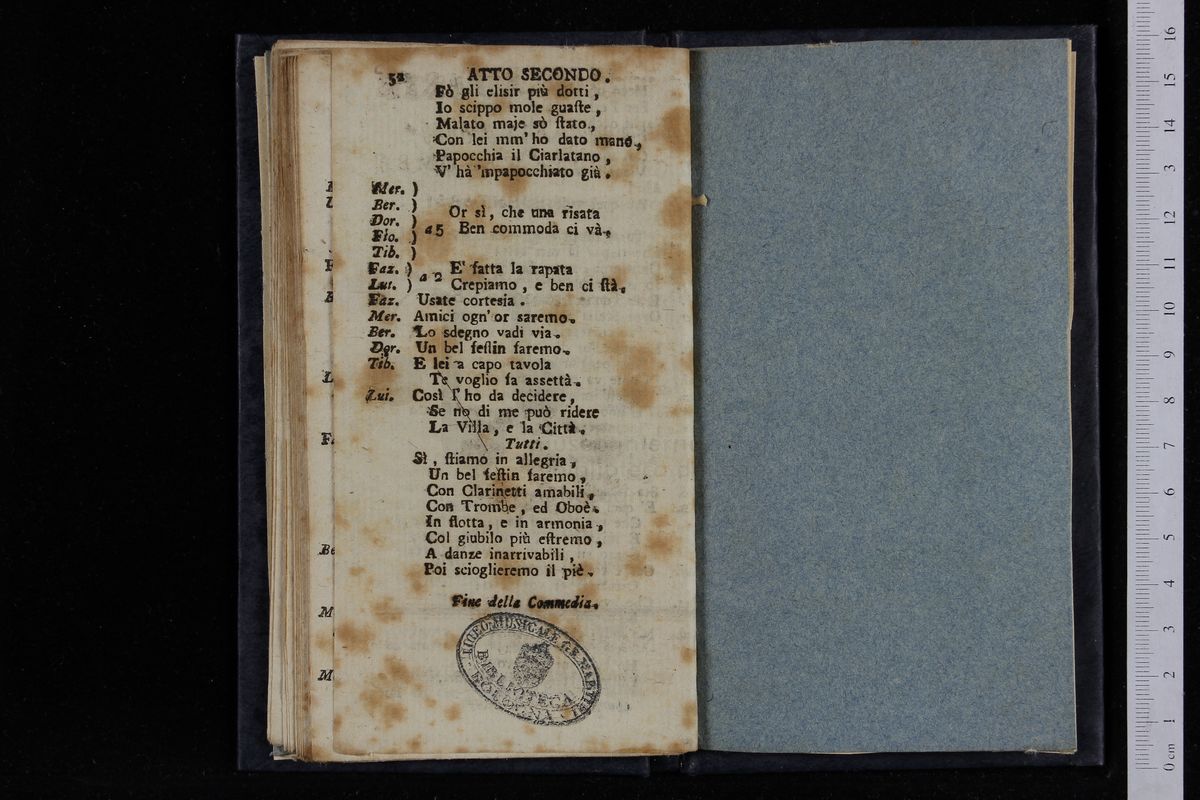 52 ATTO SECONDO.
Fò gli elisir più dotti,
Io scippo mole guaste,
Malato maje sò stato,
Con lei mm' ho dato mano,
Papocchia il Ciarlatano,
V' hà 'mpapocchiato già.
Mer. )
Ber. )
Dor. )
Flo. )
Tib. )
a 5 Or sì, che una risata
Ben commoda ci và.
Faz. )
Lui. )
a 2 E' fatta la rapata
Crepiamo, e ben ci stà.
Faz. Usate cortesia.
Mer. Amici ogn' or saremo.
Ber. Lo sdegno vadi via.
Dor. Un bel festin faremo.
Tib. E lei a capo tavola
Te voglio fa assettà.
Lui. Così l' ho da decidere,
Se no di me può ridere
La Villa, e la Città.
Tutti.
Sì, stiamo in allegria,
Un bel festin faremo,
Con Clarinetti amabili,
Con Trombe, ed Oboè.
In flotta, e in armonia,
Col giubilo più estremo,
A danze inarrivabili,
Poi scioglieremo il piè.
Fine della Commedia.
LICEO MUSICALE G.B. MARTINI
BIBLIOTECA
BOLOGNA
16
15
14
13
12
11
10
9
8
7
6
5
4
3
2
1
0 cm